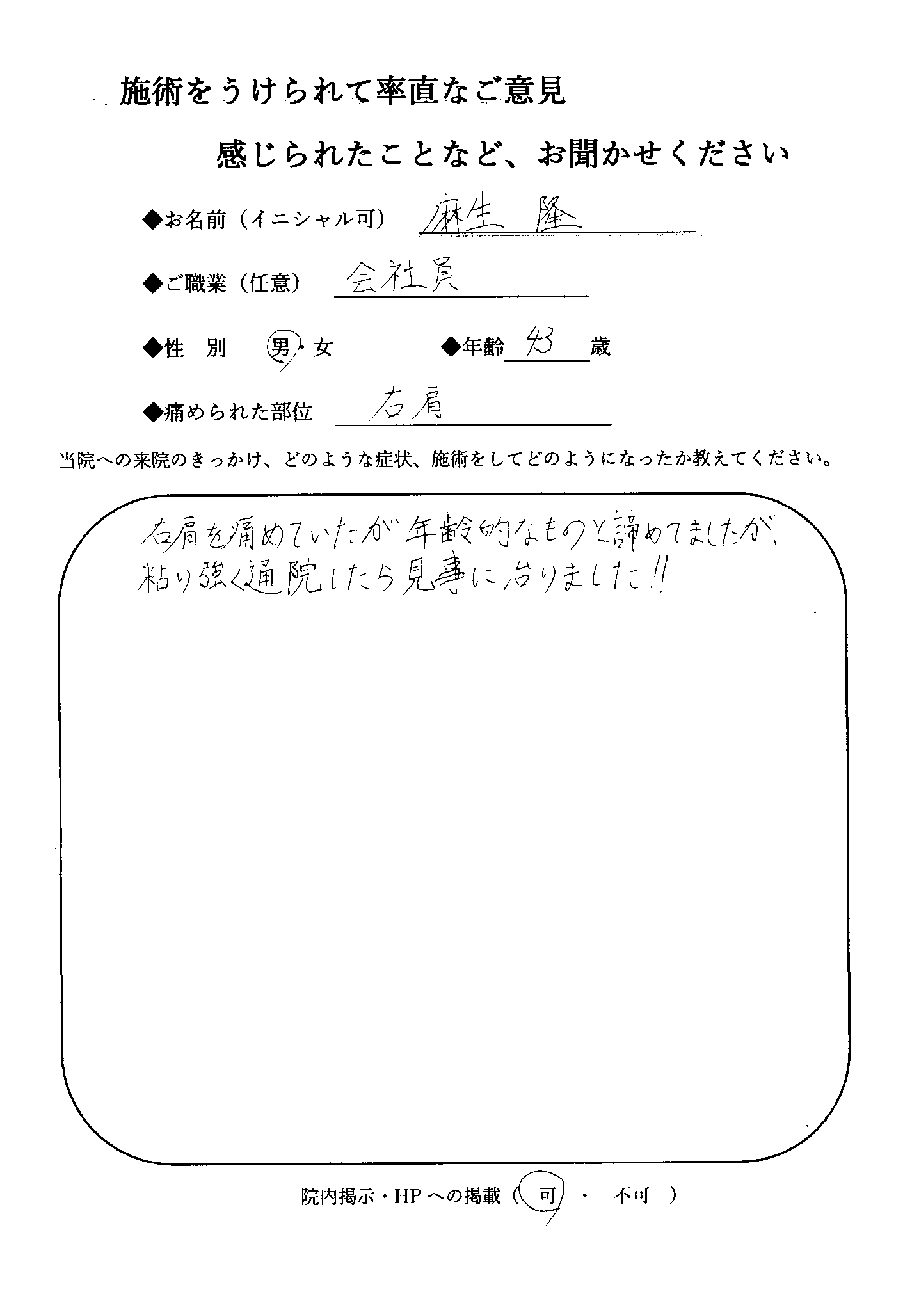 施術をうけられて率直なご意見
感じられたことなど、お聞かせください
◆お名前（イニシャル可） 麻生 隆
◆ご職業（任意） 会社員
◆性 別 男・女 ◆年齢 43 歳
◆痛められた部位 右肩
当院への来院のきっかけ、どのような症状、施術をしてどのようになったか教えてください。
右肩を痛めていたが年齢的なものと諦めてましたが、
粘り強く通院したら見事に治りました!!
院内掲示・HPへの掲載（ 可 ・ 不可 ）